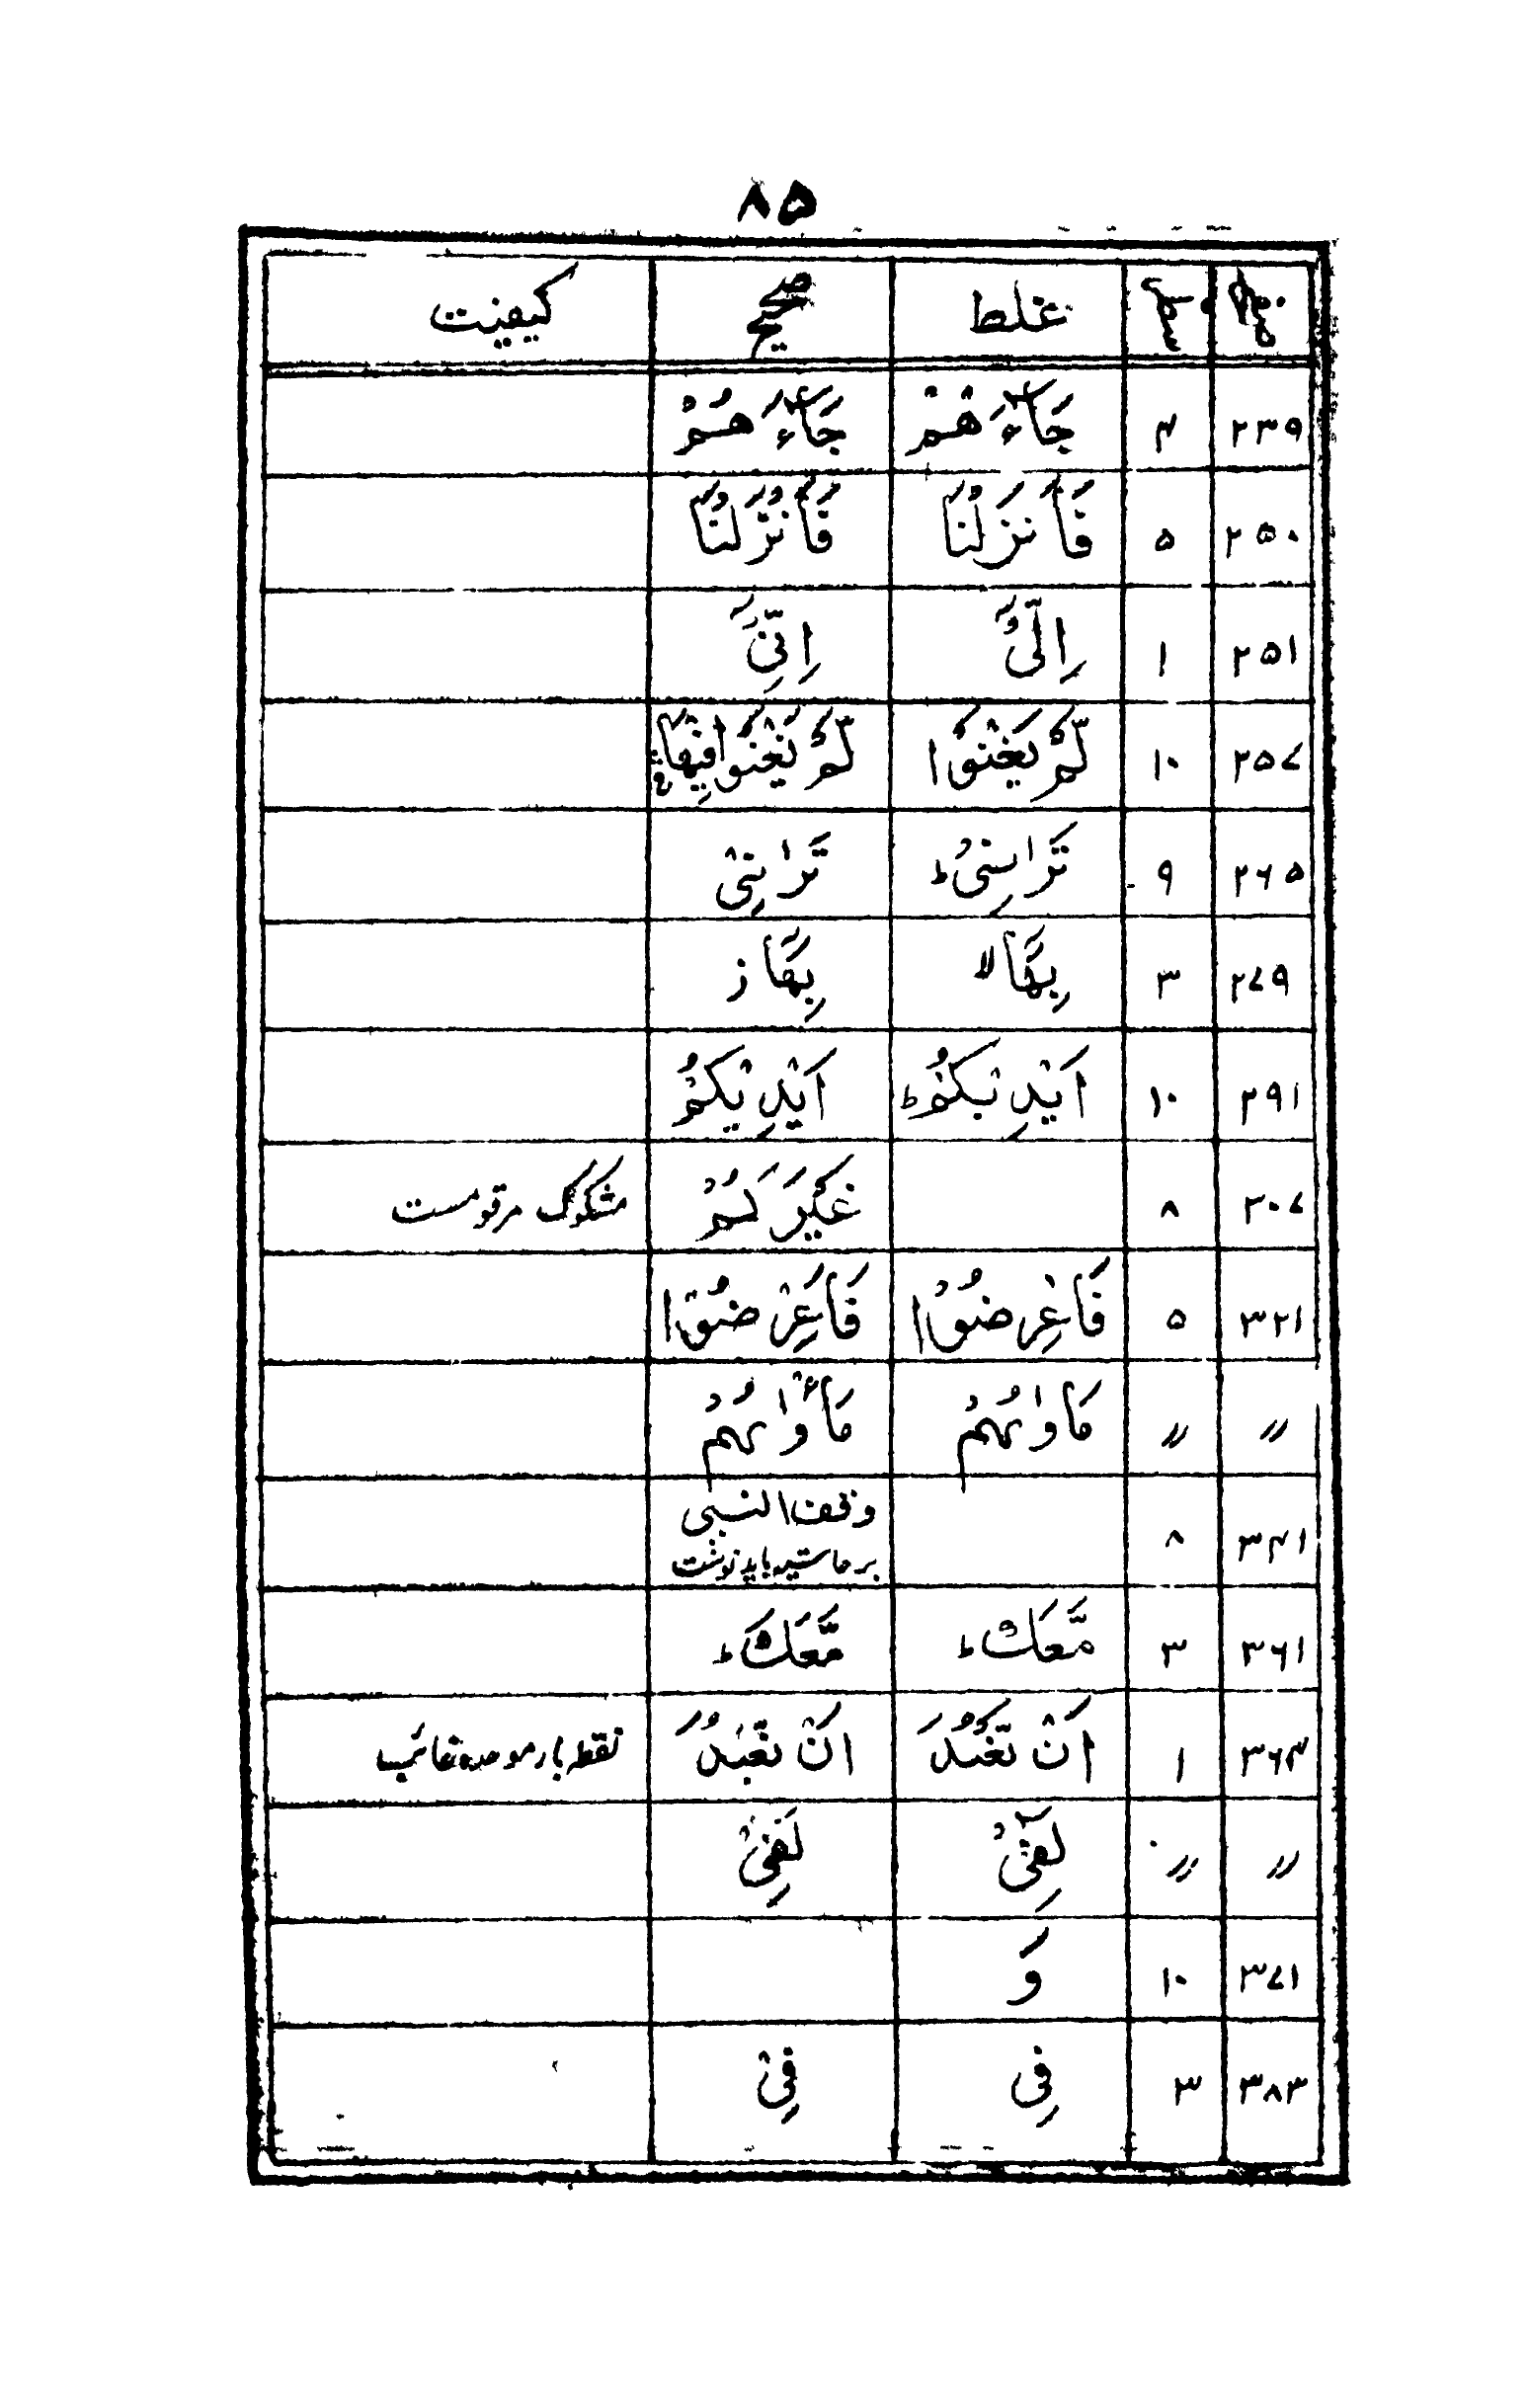 ۸۵
صفحہ سطر غلط صحیح کیفیت
۲۳۹ ۴ جَآءَهُمْ جَآءَهُمْ
۲۵۰ ۵ فَاَنْزَلْنَا فَاَنْزَلْنَا
۲۵۱ ۱ اِلٰی اِنِّیْ
۲۵۷ ۱۰ لَّمْ يَغْنَوْا لَّمْ يَغْنَوْا فِيْهَا
۲۶۵ ۹ تَرٰىنِیْ ط تَرٰىنِیْ
۲۷۹ ۳ بِهَا لا بِهَا ز
۲۹۱ ۱۰ اَيْدِيْكُمْ ط اَيْدِيْكُمْ
۳۰۷ ۸ غَيْرَكُمْ مشکوک مرقومست
۳۲۱ ۵ فَاَعْرِضُوْا فَاَعْرِضُوْا
〃 〃 مَاوٰىهُمْ مَاْوٰىهُمْ
۳۴۱ ۸ وقف النبی
بر حاشیہ باید نوشت
۳۶۱ ۳ مَّعَكَ ط مَّعَكَ ط
۳۶۴ ۱ اَنْ نَّعْبُدَ اَنْ نَّعْبُدَ نقطہ بار موحدہ غائب
〃 〃 لَفِیْ لَفِیْ
۳۷۱ ۱۰ وَ
۳۸۳ ۳ فِی فِیْ